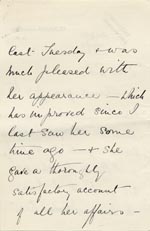 last Tuesday & was
much pleased with
her appearance – which
has improved since I
last saw her some
time ago – & she
gave a thoroughly
satisfactory account
of all her affairs –